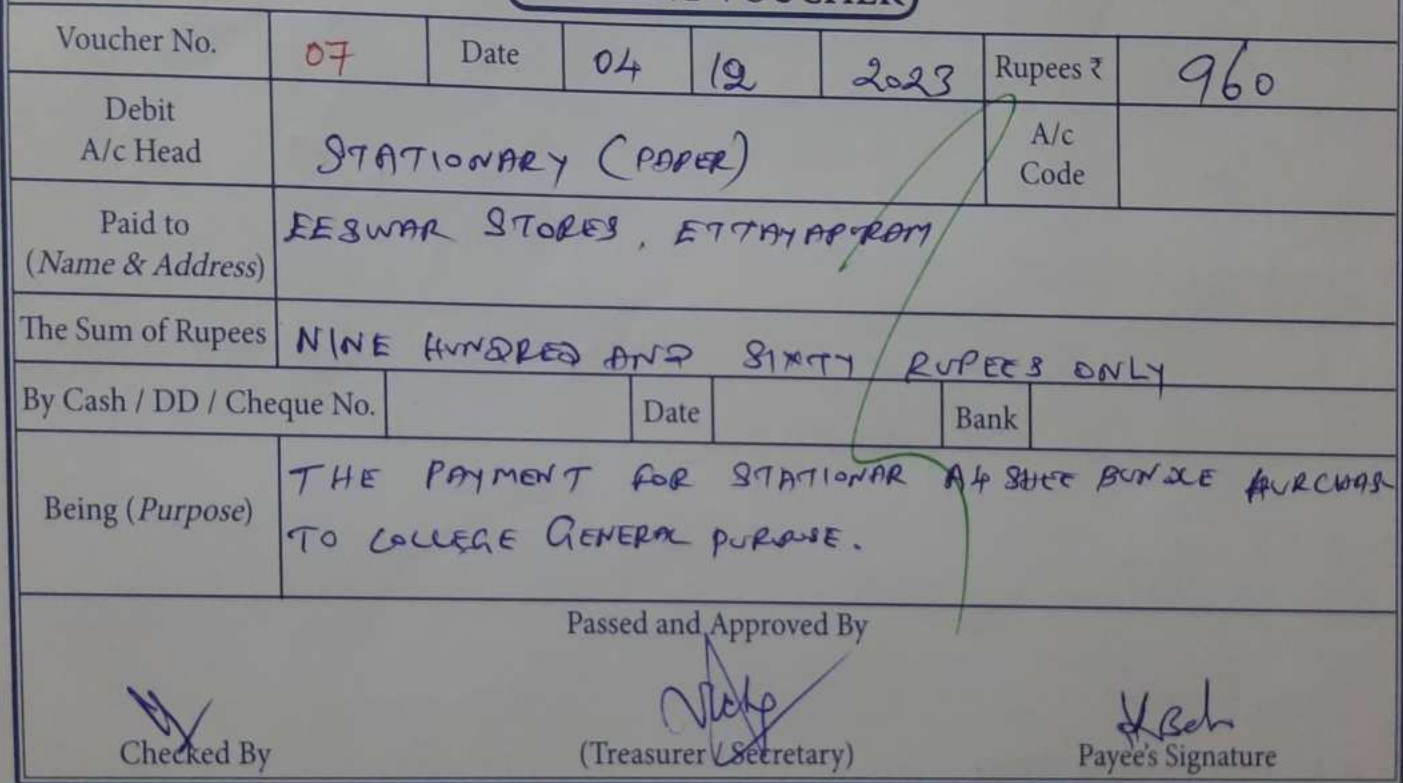 VOUCHER
Voucher No. 07 Date 04 12 2023 Rupees ₹ 960
Debit
A/c Head
STATIONARY (PAPER)
A/c
Code
Paid to
(Name & Address)
EESWAR STORES, ETTAYAPURAM
The Sum of Rupees NINE HUNDRED AND SIXTY RUPEES ONLY
By Cash / DD / Cheque No. Date Bank
Being (Purpose)
THE PAYMENT FOR STATIONAR A4 SHEE BUNDLE PURCHAS
TO COLLEGE GENERAL PURPOSE.
Passed and Approved By
Checked By (Treasurer / Secretary) Payee's Signature